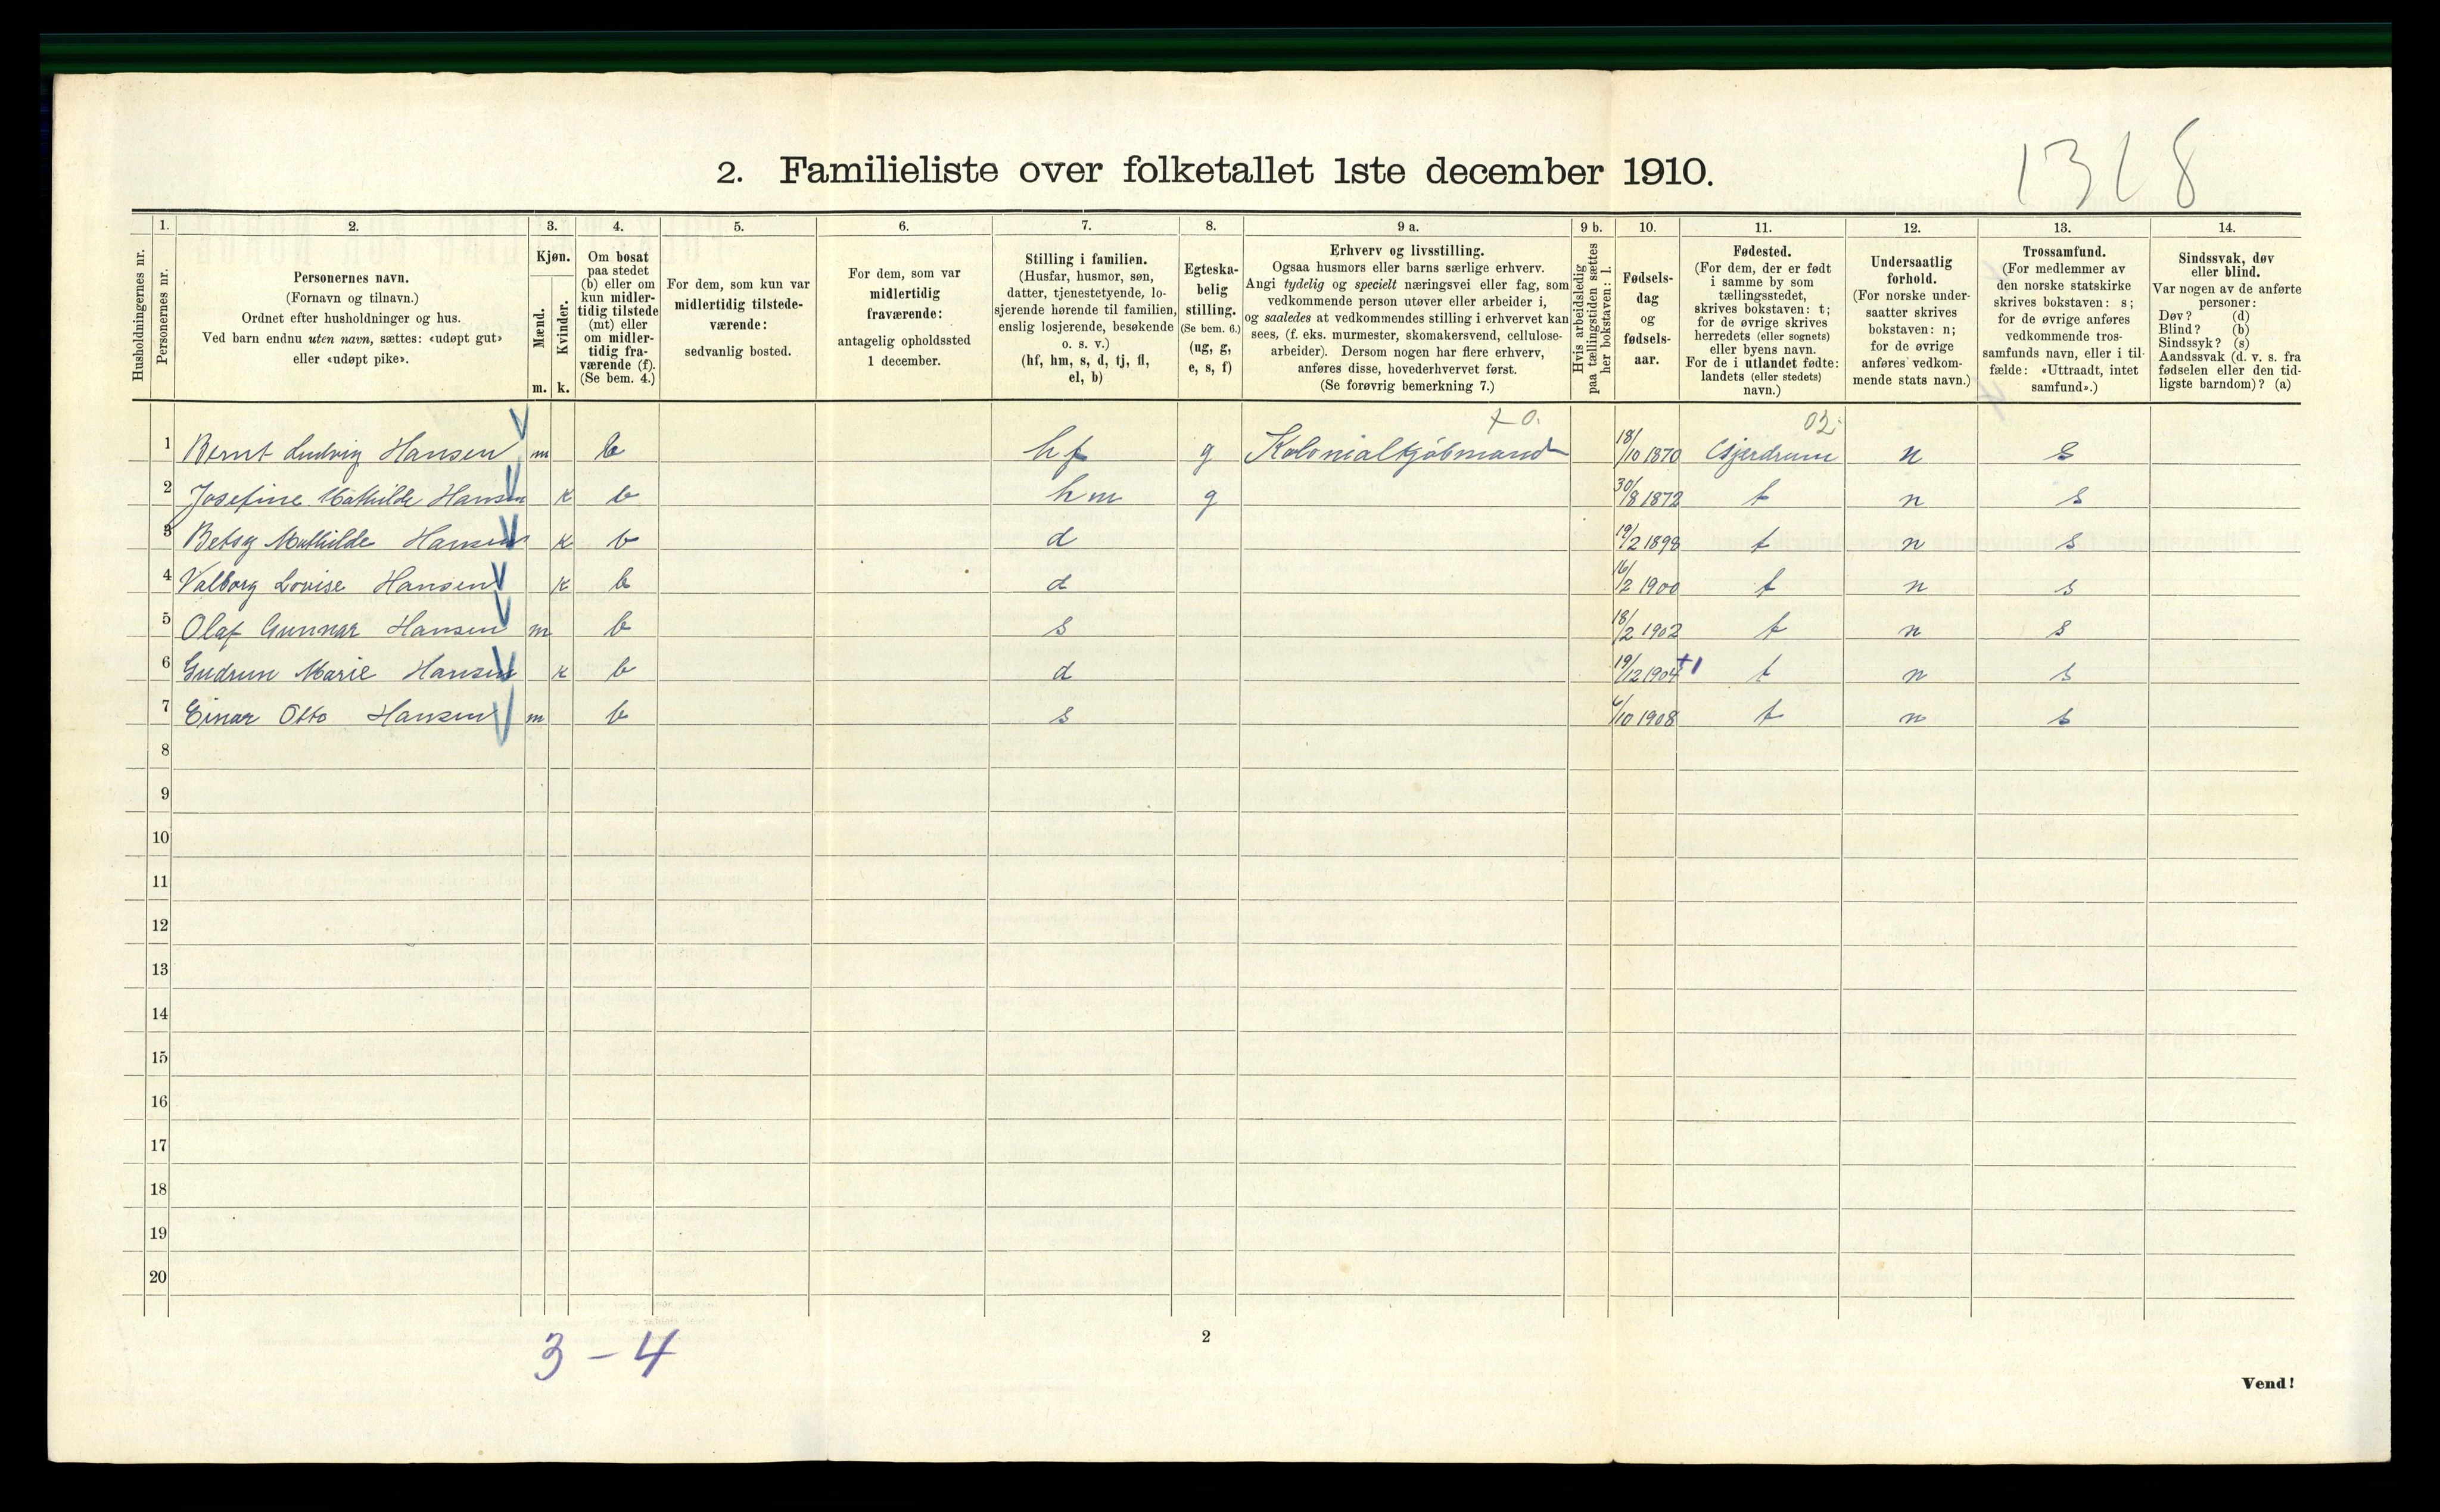 1318
2. Familieliste over folketallet 1ste december 1910.
Husholdningernes nr.
1. Personernes nr.
2. Personernes navn.
(Fornavn og tilnavn.)
Ordnet efter husholdninger og hus.
Ved barn endnu uten navn, sættes: «udøpt gut»
eller «udøpt pike».
3. Kjøn.
Mænd. m.
Kvinder. k.
4. Om bosat
paa stedet
(b) eller om
kun midler-
tidig tilstede
(mt) eller
om midler-
tidig fra-
værende (f).
(Se bem. 4.)
5. For dem, som kun var
midlertidig tilstede-
værende:
sedvanlig bosted.
6. For dem, som var
midlertidig
fraværende:
antagelig opholdssted
1 december.
7. Stilling i familien.
(Husfar, husmor, søn,
datter, tjenestetyende, lo-
sjerende hørende til familien,
enslig losjerende, besøkende
o. s. v.)
(hf, hm, s, d, tj, fl,
el, b)
8. Egteska-
belig
stilling.
(Se bem. 6.)
(ug, g,
e, s, f)
9 a. Erhverv og livsstilling.
Ogsaa husmors eller barns særlige erhverv.
Angi tydelig og specielt næringsvei eller fag, som
vedkommende person utøver eller arbeider i,
og saaledes at vedkommendes stilling i erhvervet kan
sees, (f. eks. murmester, skomakersvend, cellulose-
arbeider). Dersom nogen har flere erhverv,
anføres disse, hovederhvervet først.
(Se forøvrig bemerkning 7.)
9 b. Hvis arbeidsledig
paa tællingstiden sættes
her bokstaven: l.
10. Fødsels-
dag
og
fødsels-
aar.
11. Fødested.
(For dem, der er født
i samme by som
tællingsstedet,
skrives bokstaven: t;
for de øvrige skrives
herredets (eller sognets)
eller byens navn.
For de i utlandet fødte:
landets (eller stedets)
navn.)
12. Undersaatlig
forhold.
(For norske under-
saatter skrives
bokstaven: n;
for de øvrige
anføres vedkom-
mende stats navn.)
13. Trossamfund.
(For medlemmer av
den norske statskirke
skrives bokstaven: s;
for de øvrige anføres
vedkommende tros-
samfunds navn, eller i til-
fælde: «Uttraadt, intet
samfund».)
14. Sindssvak, døv
eller blind.
Var nogen av de anførte
personer:
Døv? (d)
Blind? (b)
Sindssyk? (s)
Aandssvak (d. v. s. fra
fødselen eller den tid-
ligste barndom)? (a)
02.
1 Bernt Ludvig Hansen m b hf g Kolonialkjøbmand 18/10 1870 Gjerdrum n s
2 Josefine Mathilde Hansen k b hm g 30/8 1872 t n s
3 Betsy Mathilde Hansen k b d 19/2 1898 t n s
4 Valborg Lovise Hansen k b d 16/2 1900 t n s
5 Olaf Gunnar Hansen m b s 18/2 1902 t n s
6 Gudrun Marie Hansen k b d 19/12 1904 +1 t n s
7 Einar Otto Hansen m b s /10 1908 t n s
8
9
10
11
12
13
14
15
16
17
18
19
20
3 - 4
2
Vend!